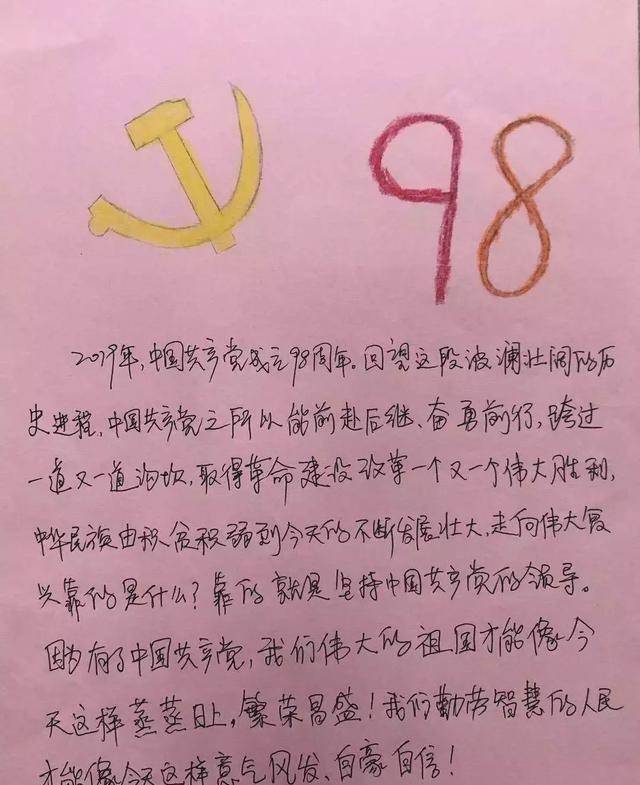 98
2019年,中国共产党成立98周年。回望这段波澜壮阔的历
史进程,中国共产党之所以能前赴后继、奋勇前行,跨过
一道又一道沟坎,取得革命建设改革一个又一个伟大胜利,
中华民族由积贫积弱到今天的不断发展壮大,走向伟大复
兴靠的是什么?靠的就是坚持中国共产党的领导。
因为有了中国共产党,我们伟大的祖国才能像今
天这样蒸蒸日上,繁荣昌盛!我们勤劳智慧的人民
才能像今天这样意气风发、自豪自信!